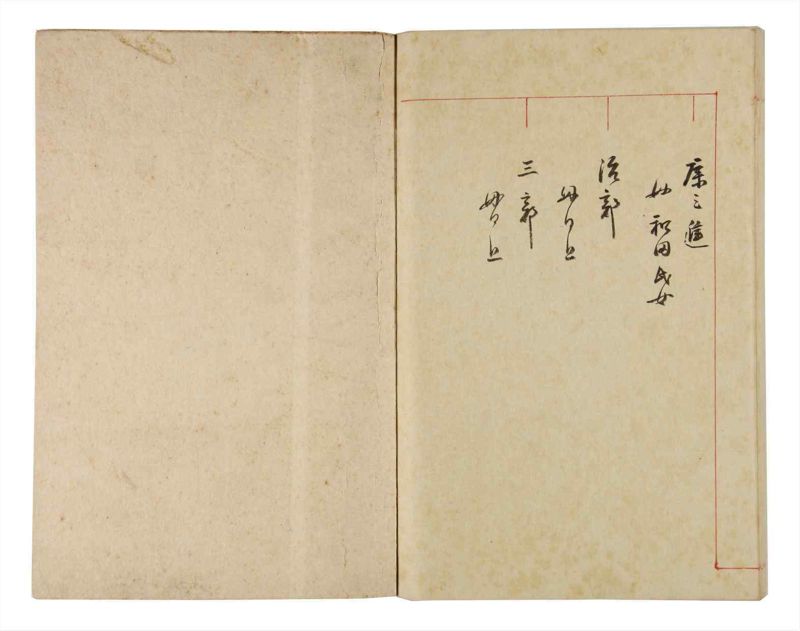 康之進
母 和田氏女
治郎
母同上
三郎
母同上